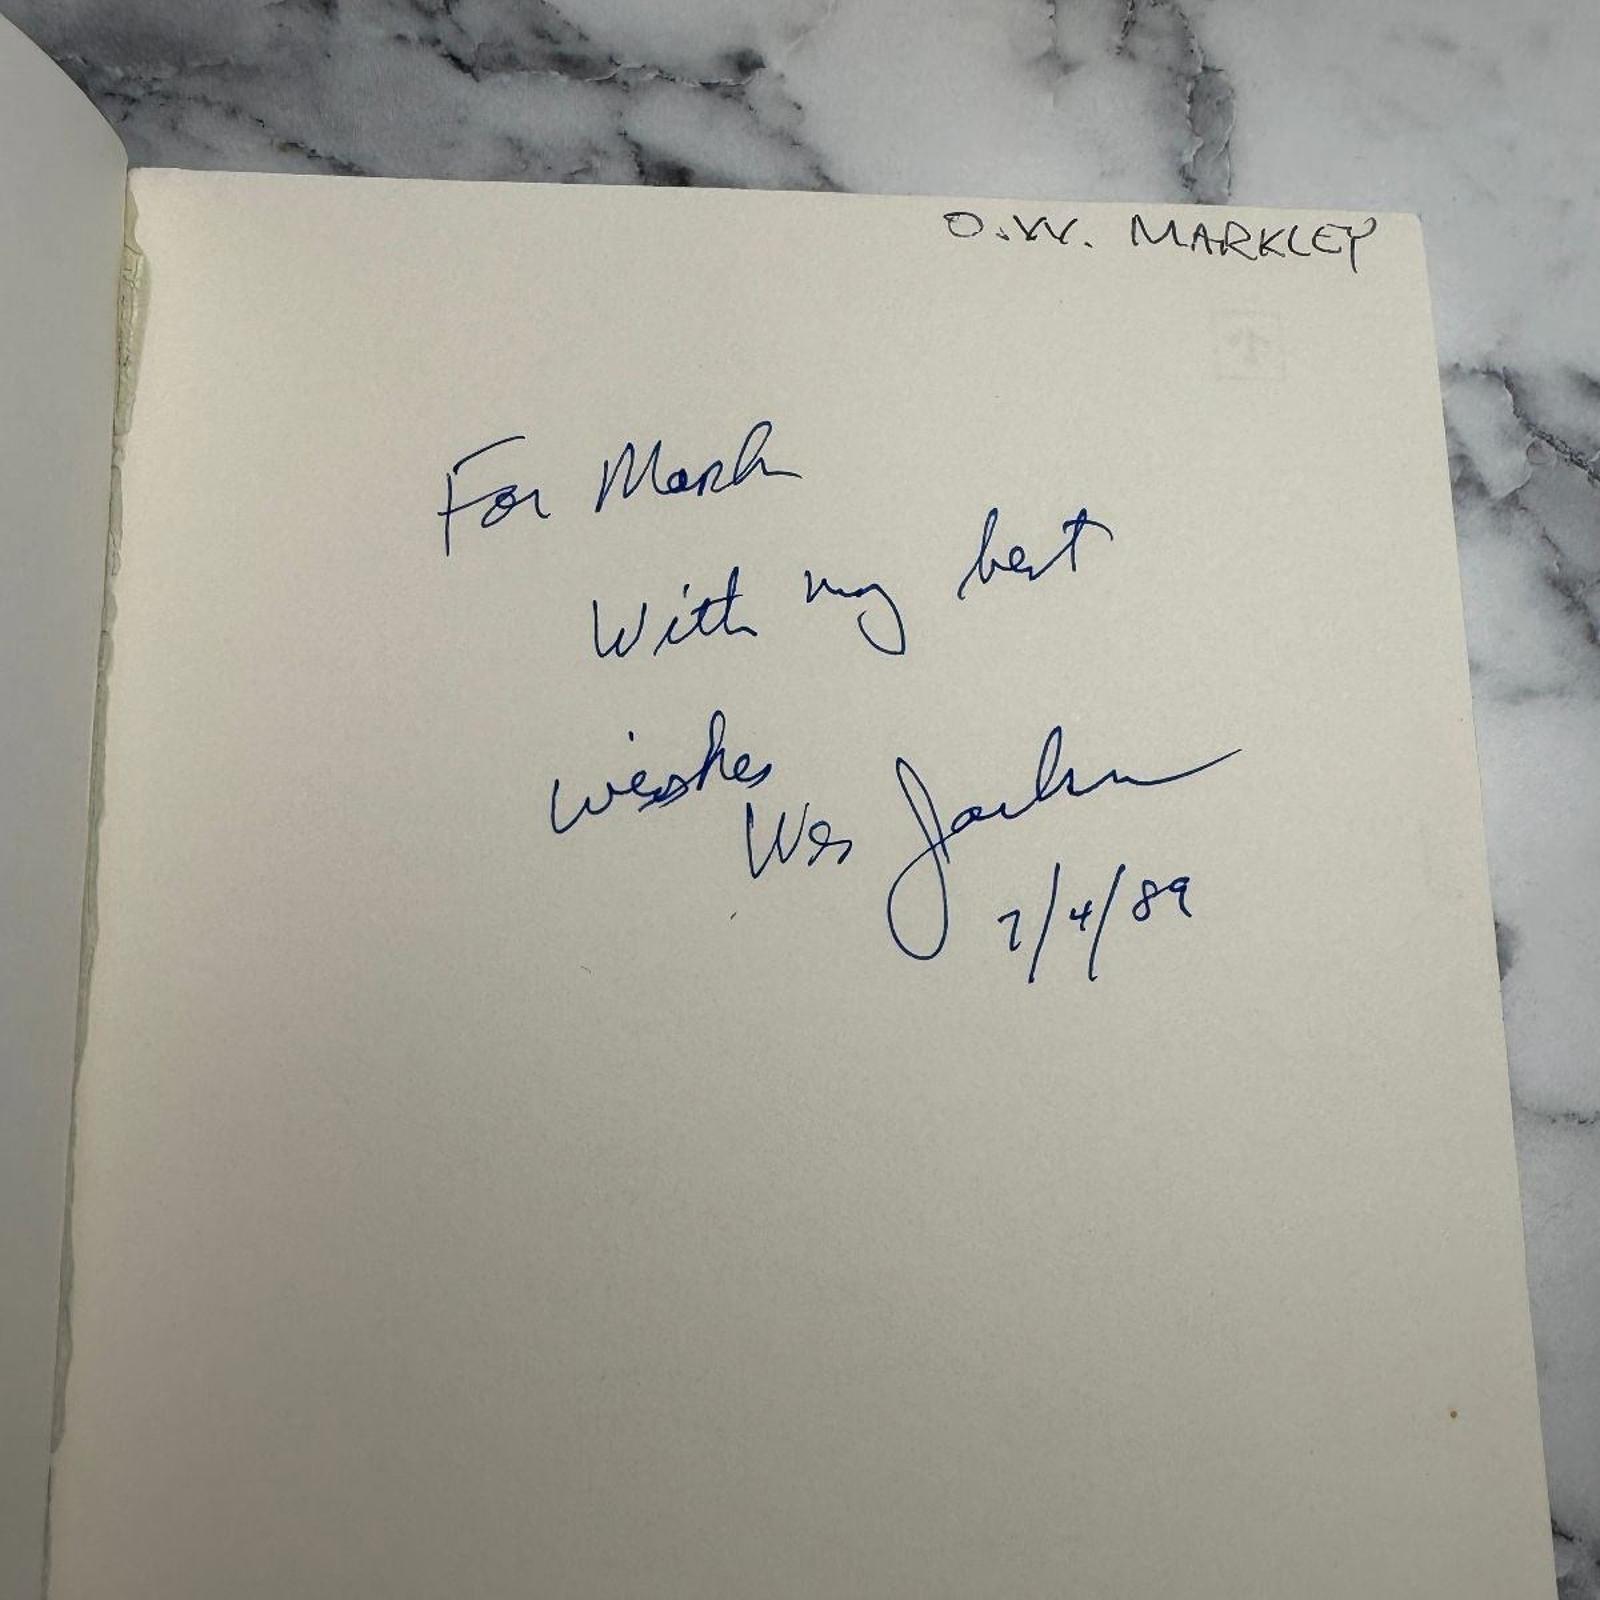 O.W. MARKLEY
For Mark
With my best
wishes
Wes Jackson
7/4/89